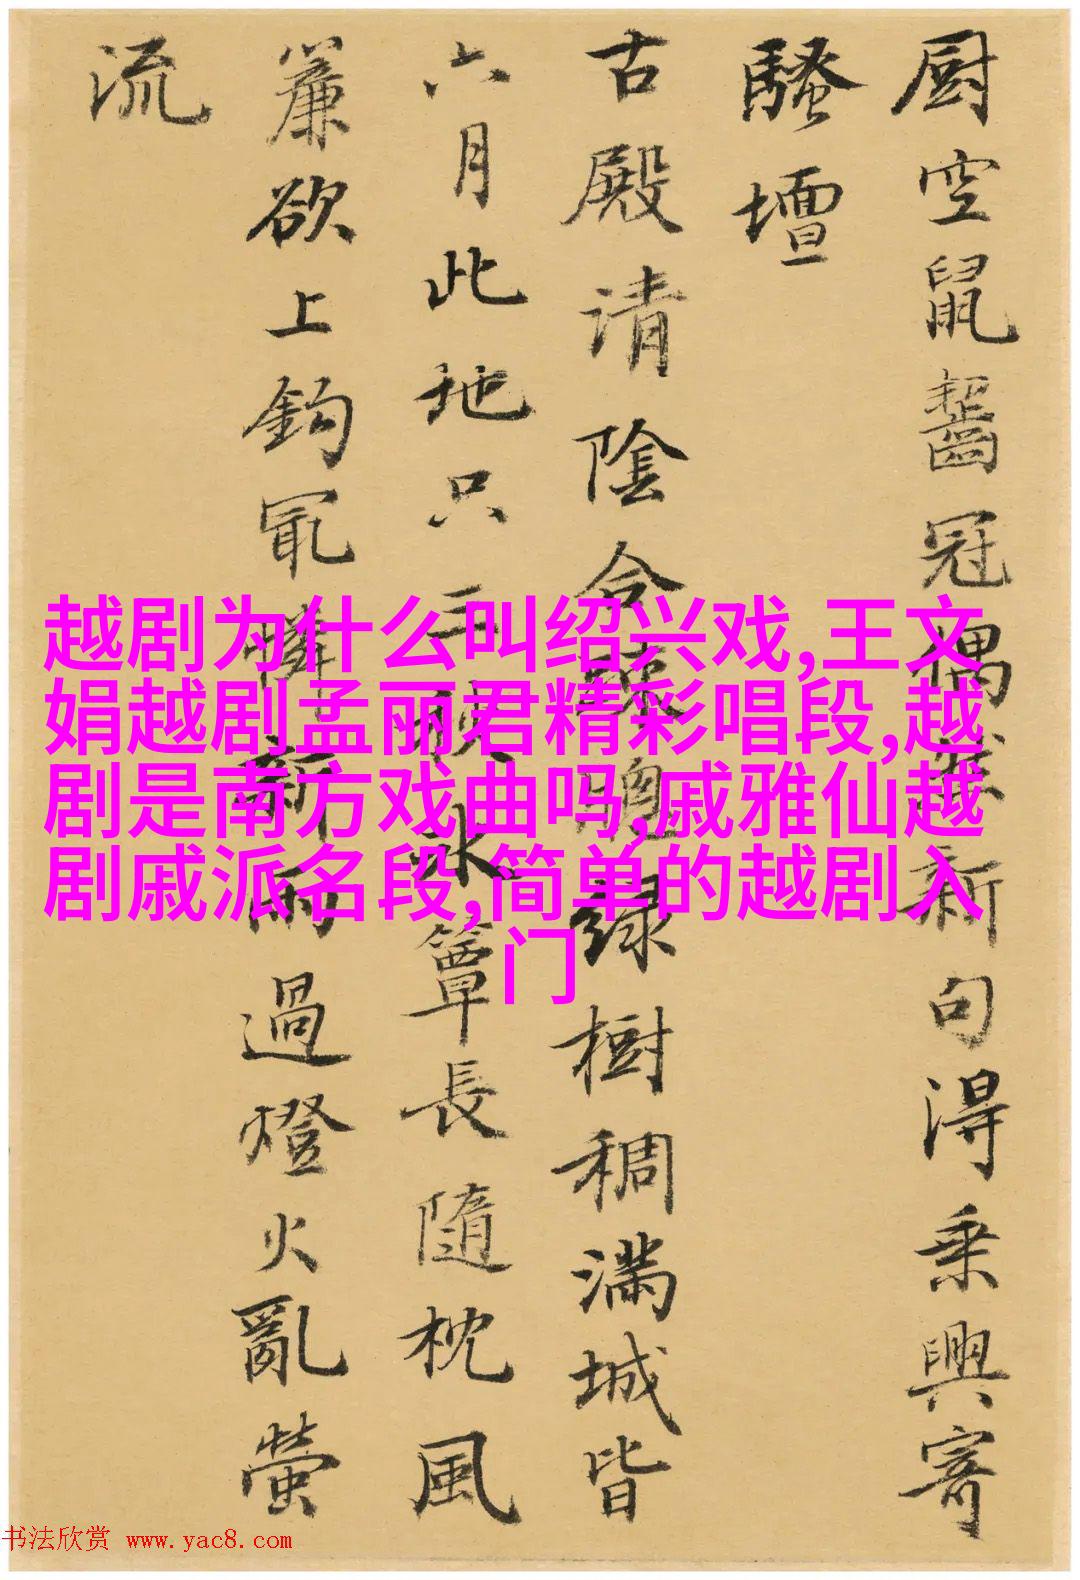 厨空鼠齧冠偶然新句得乘興寄
騷壇
古殿请陰合疎聰緑樹稠满城皆
六月此地只三秋冰簟長隨枕風
簾欲上鉤冣憐新雨過燈火亂螢
流
越剧为什么叫绍兴戏,王文
娟越剧孟丽君精彩唱段,越
剧是南方戏曲吗,戚雅仙越
剧戚派名段,简单的越剧入
门
书法欣赏 www.yac8.com